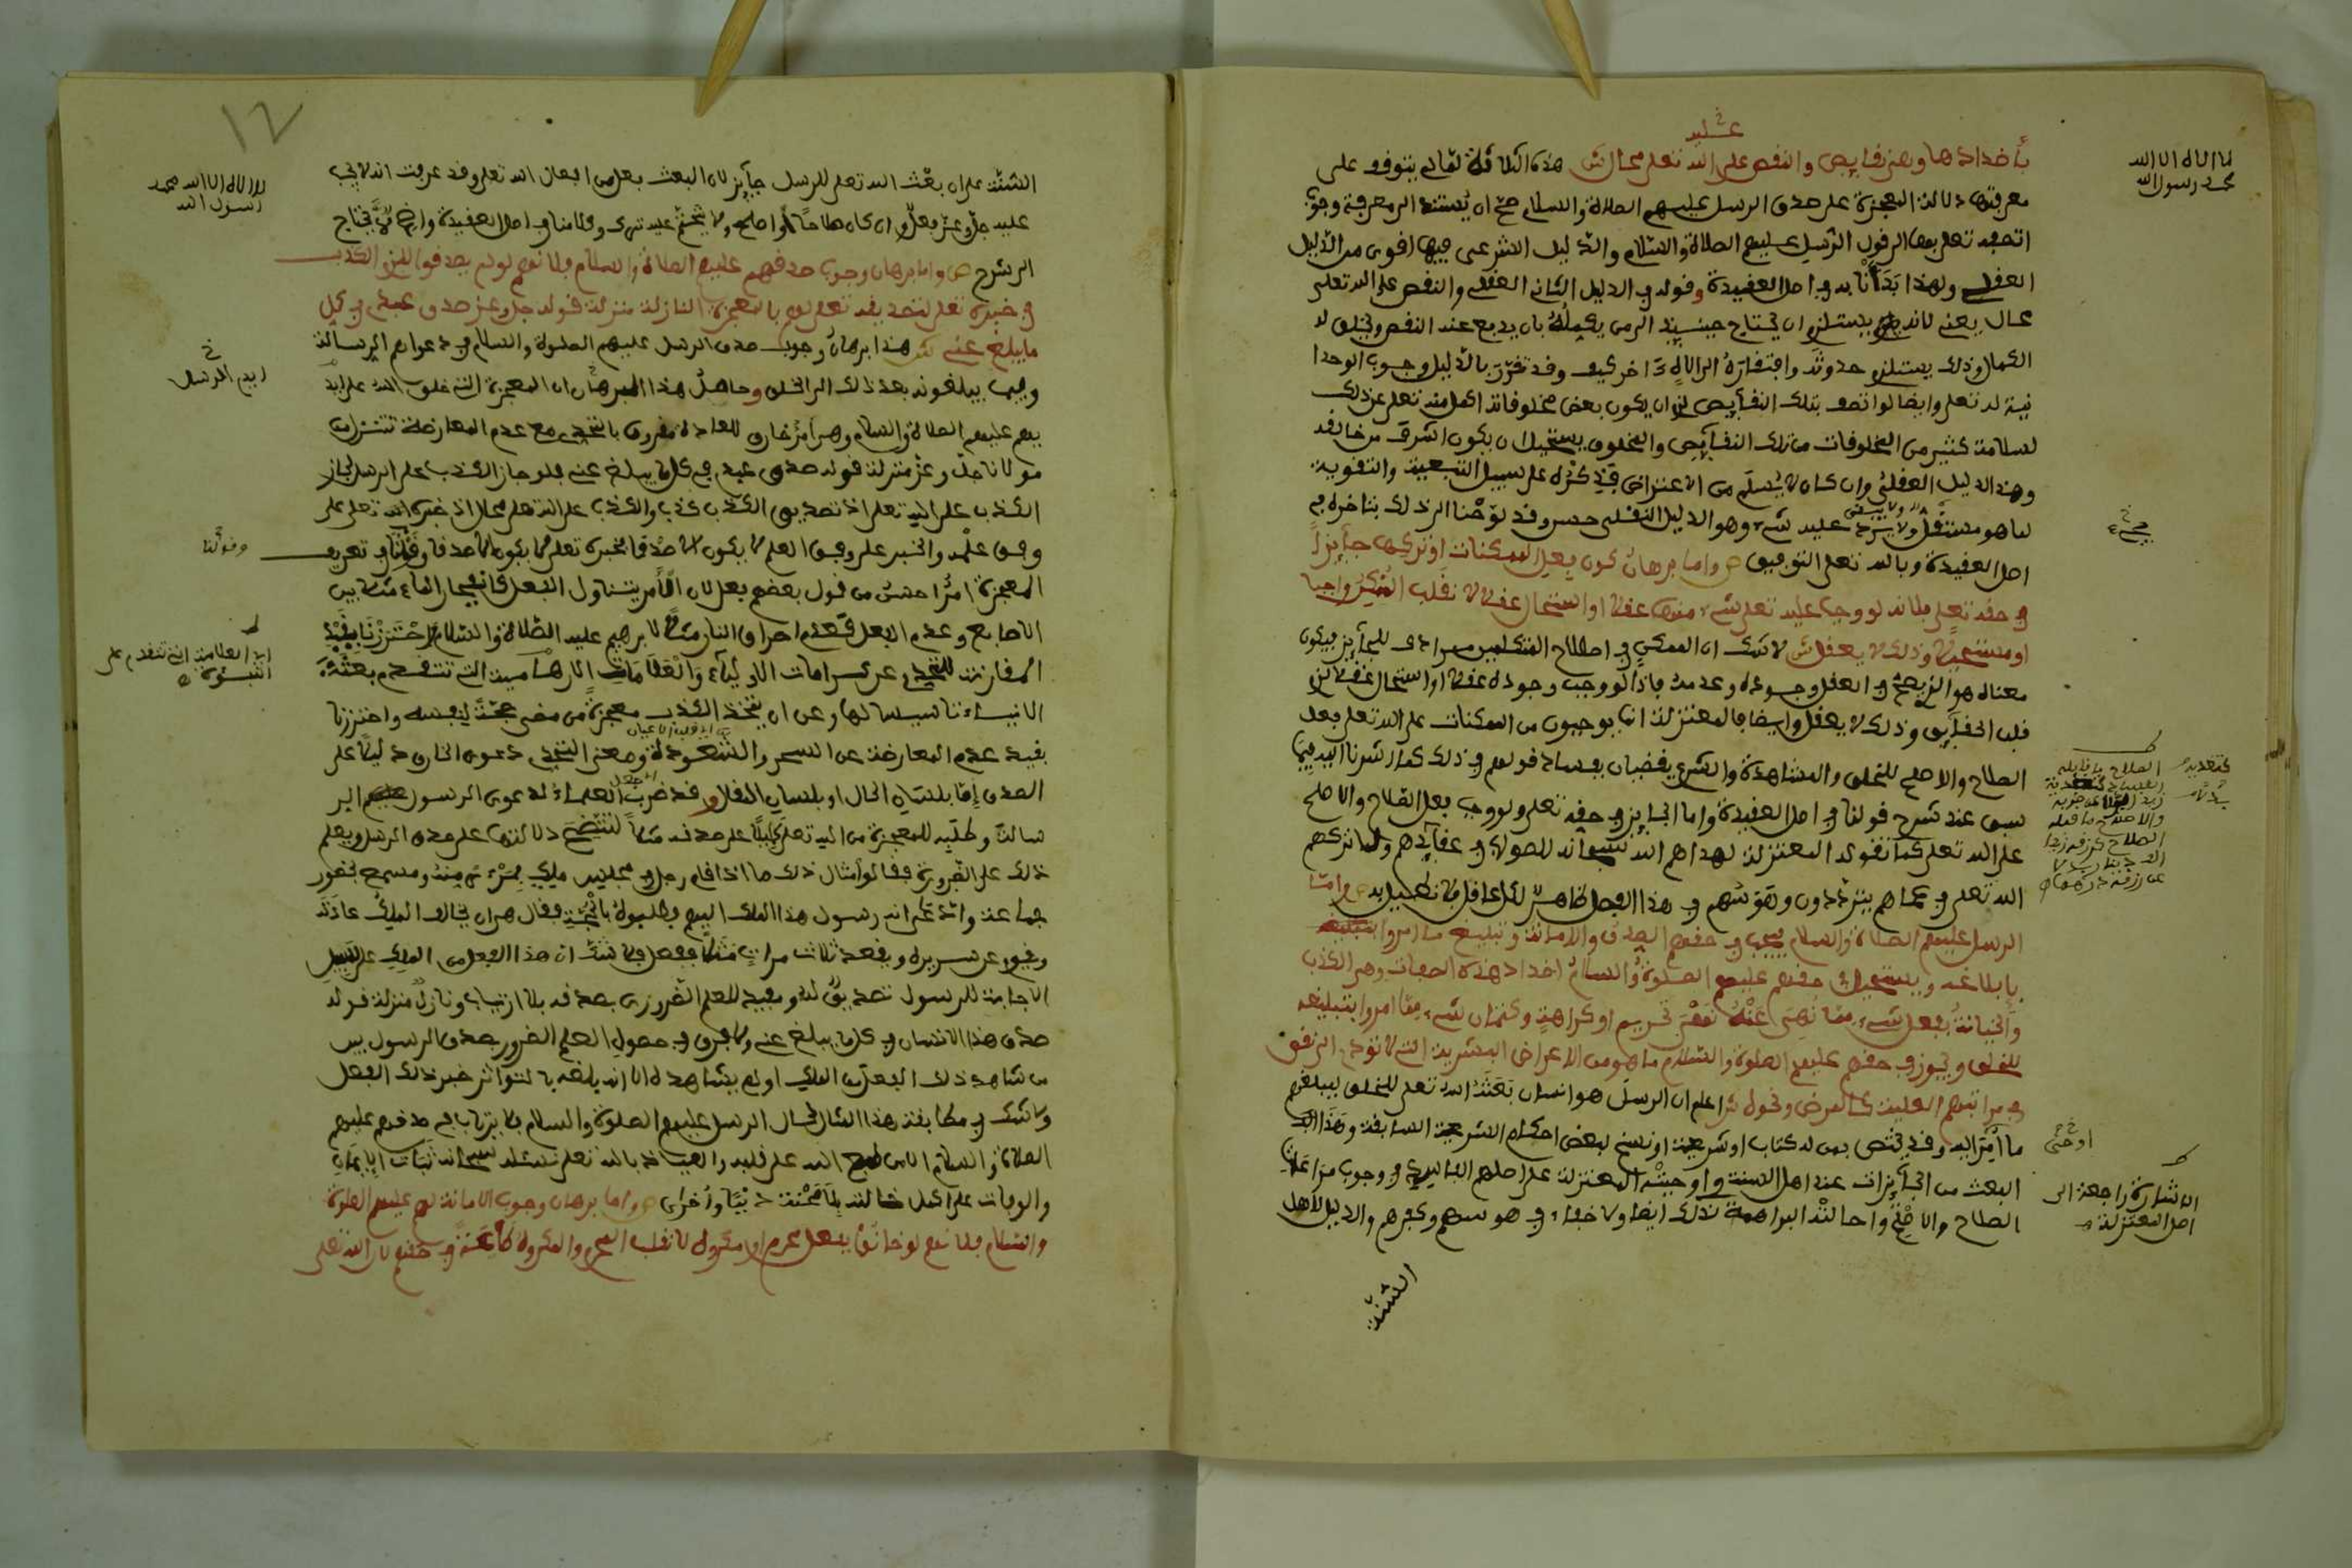 لا اله الا الله
محمد رسول الله
عليه
بأضدادها وهي نقايص والنقص على الله تعلى محال ش هذه الثلاثة لما لم يتوقف على
معرفتها دلالة المعجزة على صدق الرسل عليهم الصلاة والسلام صح ان يستند الى معرفة وجوب
اتصافه تعلى بها الى قول الرسل عليهم الصلاة والسلام والدليل الشرعي فيها اقوى من الدليل
العقلي ولهذا بدأنا به في اصل العقيدة وقوله في الدليل الثاني العقلي والنقص على الله تعلى
محال يعني لانه يستلزم ان يحتاج حينئذ الى من يكمله بان يدفع عنه النقص ويخلق له
الكمال وذلك يستلزم حدوثه وافتقاره الى اله اخر كيف وقد تقرر بالدليل وجوب الوحدا
نية له تعلى وايضا لو اتصف بتلك النقايص لزم ان يكون بعض مخلوقاته اكمل منه تعلى عن ذلك
لسلامة كثير من المخلوقات من تلك النقايص والمخلوق يستحيل ان يكون اشرف من خالقه
وهذا الدليل العقلي وان كان لا يسلم من الاعتراض فذكره على سبيل التبعية والتقوية
لما هو مستقل ولا يرد عليه شيء وهو الدليل النقلي حسن وقد لوحنا الى ذلك بتأخره في
اصل العقيدة وبالله تعلى التوفيق ص واما برهان كون فعل الممكنات او تركها جايزا
في حقه تعلى فلانه لو وجب عليه تعلى شيء منها عقلا او استحال عقلا لانقلب الممكن واجبا
او مستحيلا وذلك لا يعقل ش لا شك ان الممكن في اصطلاح المتكلمين مرادف للجايز فيكون
معناه هو الذي يصح في العقل وجوده وعدمه فاذا لو وجب وجوده عقلا او استحال عقلا لزم
قلب الحقايق وذلك لا يعقل وايضا فالمعتزلة انما يوجبون من الممكنات على الله تعلى فعل
الصلاح والاصلح للخلق والمشاهدة والشرع يقضيان بفساد قولهم في ذلك كما اشرنا اليه فيما
سبق عند شرح قولنا في اصل العقيدة واما الجايز في حقه تعلى ولو وجب فعل الصلاح والاصلح
على الله تعلى كما تقوله المعتزلة لهداهم الله سبحانه للصواب في عقايدهم ولما تركهم
الله تعلى في عماهم يترددون وهوسهم في هذا الفصل ظاهر لكل عاقل فلا نطيل به ص واما
الرسل عليهم الصلاة والسلام فيجب في حقهم الصدق والامانة وتبليغ ما امروا بتبليغه
بإبلاغه ويستحيل في حقهم عليهم الصلوة والسلام اضداد هذه الصفات وهي الكذب
والخيانة بفعل شيء مما نهي عنه نهي تحريم او كراهة وكتمان شيء مما امروا بتبليغه
للخلق ويجوز في حقهم عليهم الصلوة والسلام ما هو من الاعراض البشرية التي لا تؤدي الى نقص
في مراتبهم العلية كالمرض ونحوه ش اعلم ان الرسل هو انسان بعثه الله تعلى للخلق ليبلغهم
ما امر اليه وقد يختص بمن له كتاب او شريعة او نسخ لبعض احكام الشريعة السابقة وهذا
البعث من الجايزات عند اهل السنة واوجبته المعتزلة على اصلهم الفاسد في وجوب مراعاة
الصلاح والاصلح واحالته البراهمة لذلك ايضا ولا خفاء في هوسهم وكفرهم والدليل لاهل
السنة
او حتى
الاشارة راجعة الى
اصل المعتزلة
١٧
لا اله الا الله محمد
رسول الله
السنة على ان بعث الله تعلى للرسل جايز لان البعث فعل من افعال الله تعلى وقد عرفت انه لا يجب
عليه جل وعز فعل وان كان صلاحا او اصلح ولا يتحتم عليه ترك وكلامنا في اصل العقيدة واضح لا يحتاج
الى شرح ص واما برهان وجوب صدقهم عليهم الصلاة والسلام فلانهم لو لم يصدقوا للزم الكذب
في خبره تعلى لتصديقه تعلى لهم بالمعجزة النازلة منزلة قوله جل وعز صدق عبدي في كل
ما يبلغ عني ش هذا برهان وجوب صدق الرسل عليهم الصلوة والسلام في دعواهم الرسالة
وفيما يبلغونه بعد ذلك الى الخلق وحاصل هذا البرهان ان المعجزة التي خلق الله على ايد
يهم عليهم الصلاة والسلام وهي امر خارق للعادة مقرون بالتحدي مع عدم المعارضة تتنزل من
مولانا جل وعز منزلة قوله صدق عبدي في كل ما يبلغ عني فلو جاز الكذب على الرسل لجاز
الكذب على الله تعلى اذ تصديق الكذب كذب والكذب على الله تعلى محال اذ خبر الله تعلى على
وفق علمه والخبر على وفق العلم لا يكون الا صدقا فخبره تعلى لا يكون الا صدقا وقولنا في تعريف
المعجزة امر احسن من قول بعضهم فعل لان الامر يتناول الفعل كانفجار الماء مثلا من بين
الاصابع وعدم الفعل كعدم احراق النار مثلا لابراهيم عليه الصلاة والسلام واحترزنا بقيد
المقارنة للتحدي عن كرامات الاولياء والعلامات الارهاصية التي تتقدم بعثة
الانبياء تاسيسا لها وعن ان يتخذ الكذب معجزة من مضى حجة لنفسه واحترزنا
بقيد عدم المعارضة عن السحر والشعوذة ومعنى التحدي دعوى الخارق دليلا على
الصدق اما بلسان الحال او بلسان المقال وقد ضرب العلماء لدعوى الرسول الر
سالة وطلبه للمعجزة من الله تعلى دليلا على صدقه مثلا لتتضح دلالتها على صدق الرسل ويعلم
ذلك على الضرورة فقالوا مثال ذلك ما اذا قام رجل في مجلس ملك بمرءى منه ومسمع بحضور
جماعة وادعى انه رسول هذا الملك اليهم فطلبوه بالحجة فقال هي ان يخالف الملك عادته
ويقوم عن سريره ويقعد ثلاث مرات مثلا ففعل فلا شك ان هذا الفعل من الملك على سبيل
الاجابة للرسول تصديق له ومفيد للعلم الضروري بصدقه بلا ارتياب ونازل منزلة قوله
صدق هذا الانسان في كل ما يبلغ عني ولا فرق في حصول العلم الضروري بصدق الرسول بين
من شاهد ذلك الفعل من الملك او لم يشاهده الا انه بلغه بالتواتر خبر ذلك الفعل
ولا شك في مطابقة هذا المثال لحال الرسل عليهم الصلوة والسلام فلا يرتاب في صدقهم عليهم
الصلاة والسلام الا من طبع الله على قلبه والعياذ بالله تعلى نسئله سبحانه ثبات الايمان
والوفات على اكمل حالة بلا محنة دنيا واخرى ص واما برهان وجوب الامانة لهم عليهم الصلوة
والسلام فلانهم لو خانوا بفعل محرم او مكروه لانقلب المحرم والمكروه طاعة في حقهم لان الله تعلى
وقولنا